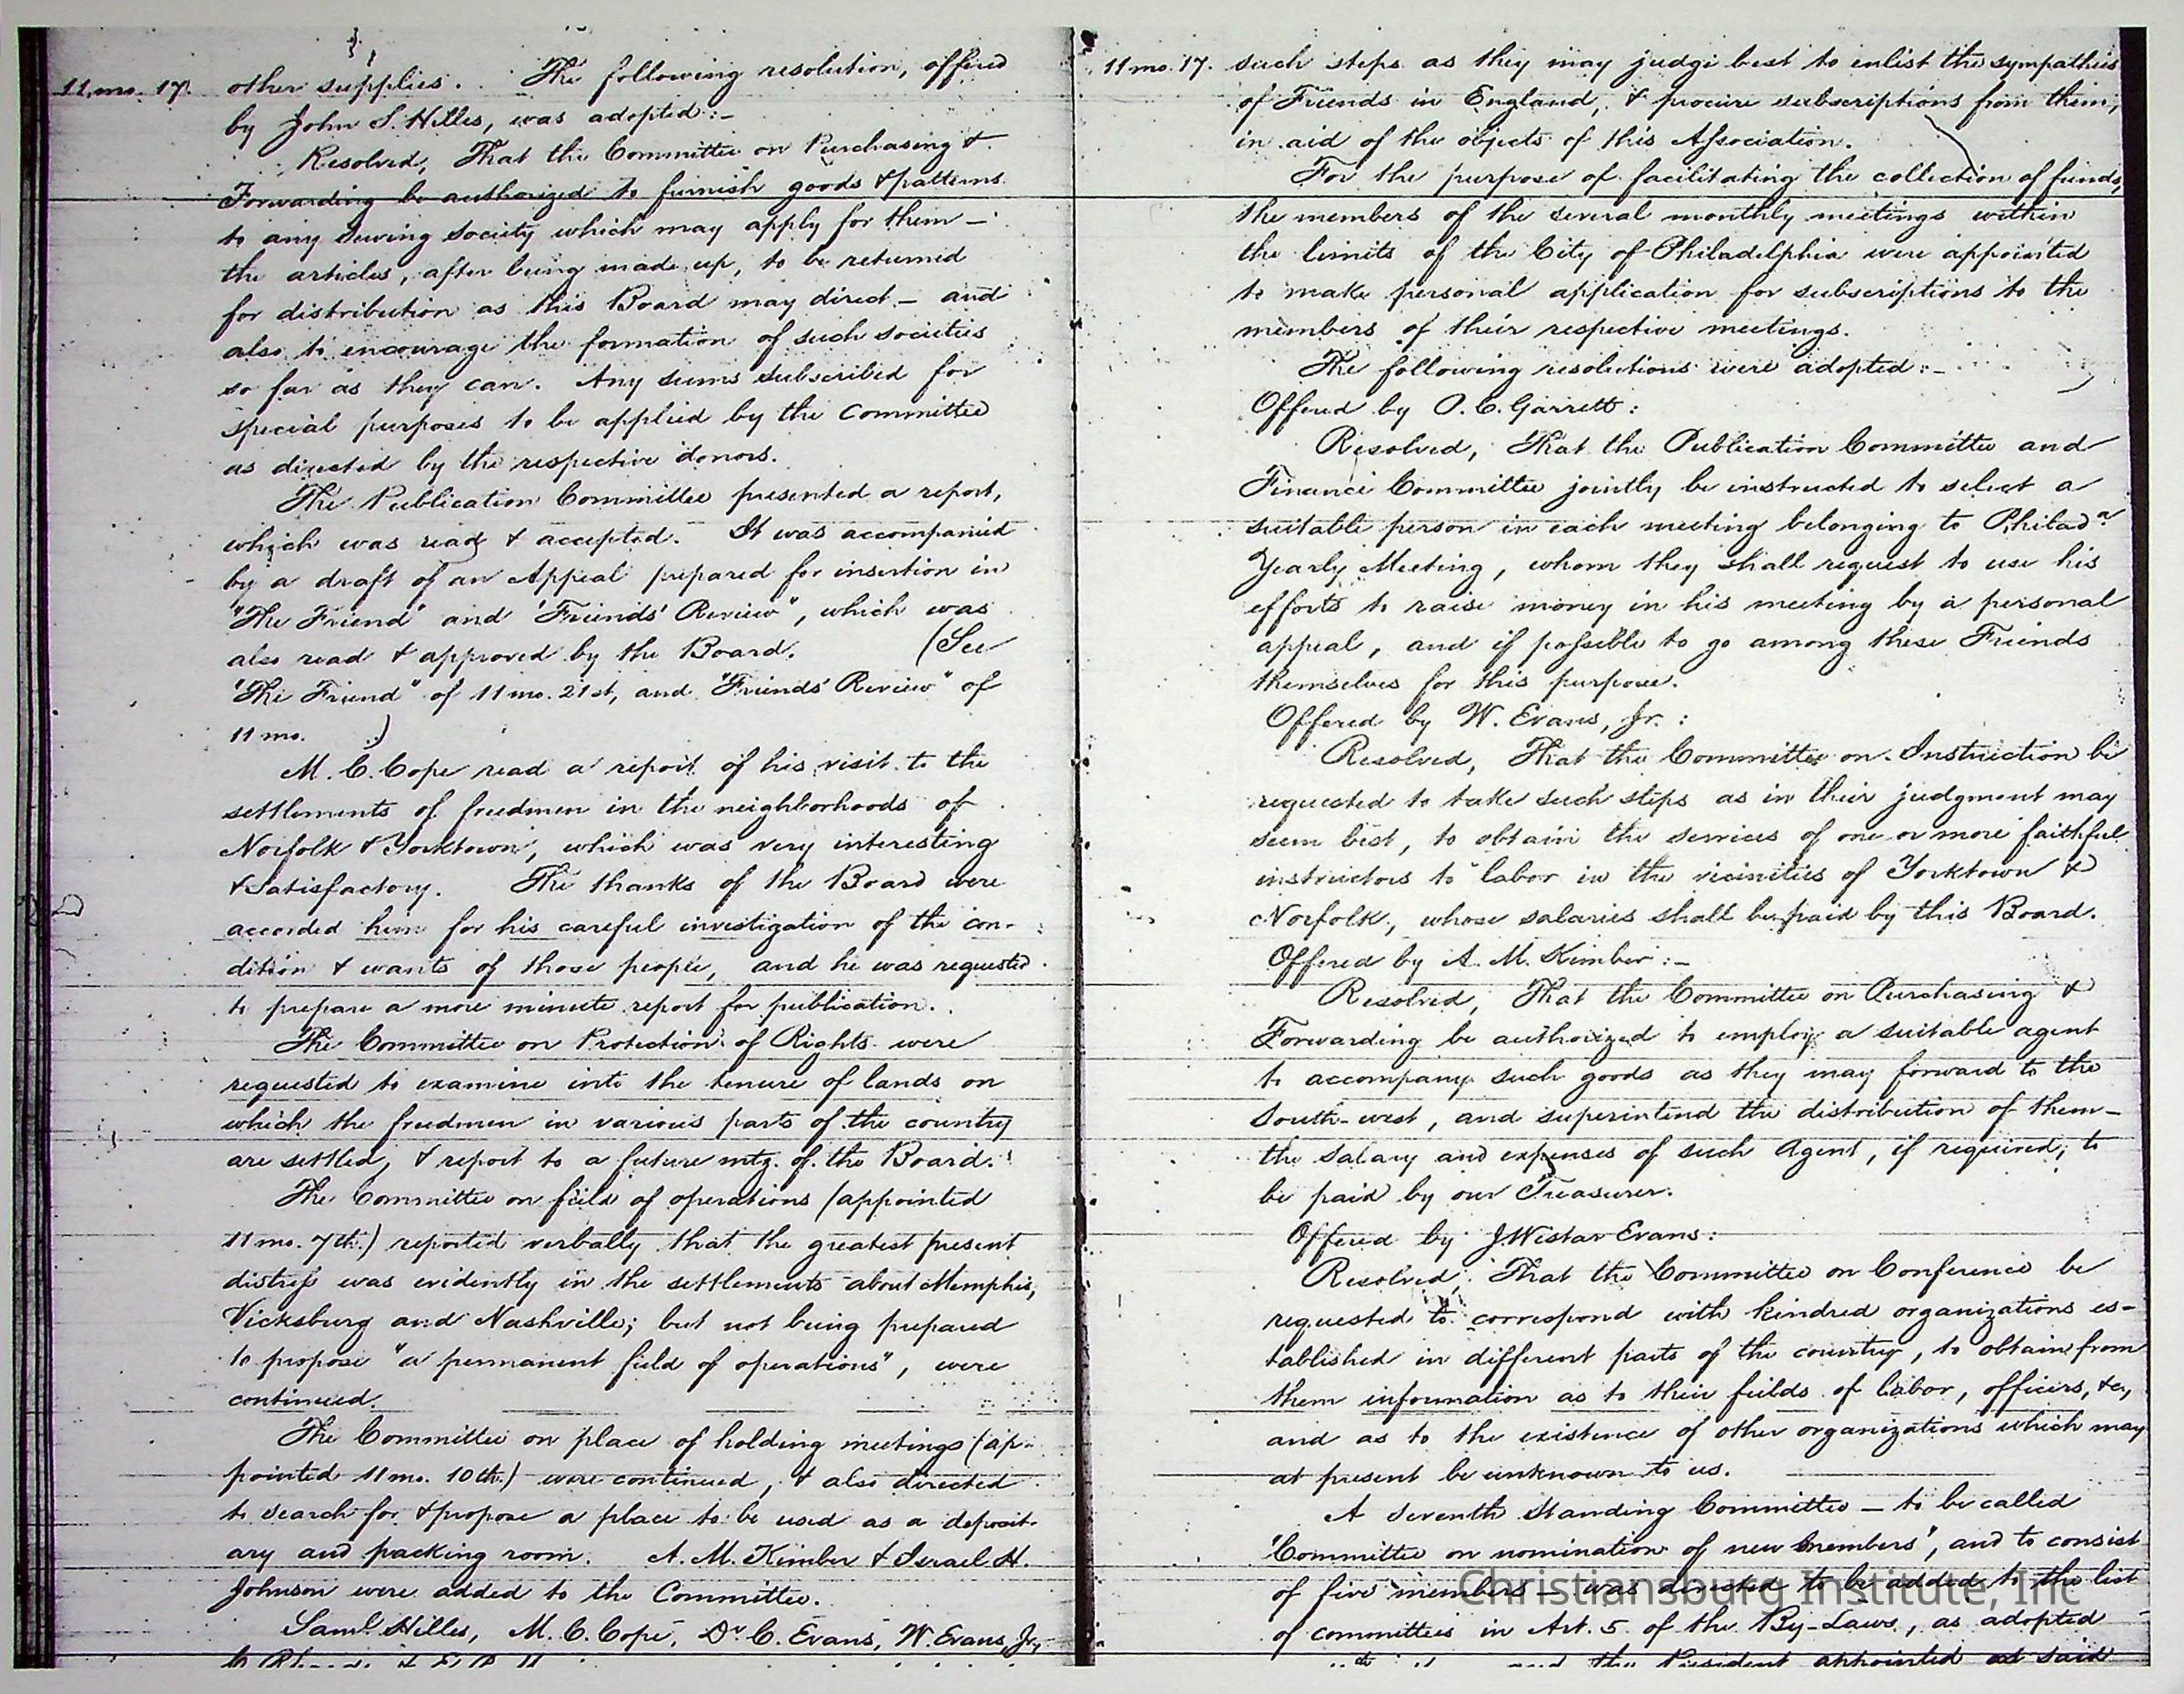 11 mo. 17. other supplies. The following resolution, offered
by John S. Hilles, was adopted:-
Resolved, That the Committee on Purchasing &
Forwarding be authorized to furnish goods & patterns
to any Sewing Society which may apply for them —
the articles, after being made up, to be returned
for distribution as this Board may direct — and
also to encourage the formation of such societies
so far as they can. Any sums subscribed for
special purposes to be applied by the Committee
as directed by the respective donors.
The Publication Committee presented a report,
which was read & accepted. It was accompanied
by a draft of an Appeal prepared for insertion in
"The Friend" and "Friends' Review", which was
also read & approved by the Board. (See
"The Friend" of 11 mo. 21st, and "Friends' Review" of
11 mo. .)
M. C. Cope read a report of his visit to the
settlements of freedmen in the neighborhoods of
Norfolk & Yorktown, which was very interesting
& satisfactory. The thanks of the Board were
accorded him for his careful investigation of the con-
dition & wants of those people, and he was requested
to prepare a more minute report for publication.
The Committee on Protection of Rights were
requested to examine into the tenure of lands on
which the freedmen in various parts of the country
are settled, & report to a future mtg. of the Board.
The Committee on field of operations (appointed
11 mo. 7th.) reported verbally that the greatest present
distress was evidently in the settlements about Memphis,
Vicksburg and Nashville; but not being prepared
to propose "a permanent field of operations", were
continued.
The Committee on place of holding meetings (ap-
pointed 11 mo. 10th.) were continued, & also directed
to search for & propose a place to be used as a deposit-
ary and packing room. A. M. Kimber & Israel H.
Johnson were added to the Committee.
Saml. Hilles, M. C. Cope, Dr. C. Evans, W. Evans, Jr,
11 mo. 17. such steps as they may judge best to enlist the sympathies
of Friends in England, & procure subscriptions from them,
in aid of the objects of this Association.
For the purpose of facilitating the collection of funds,
the members of the several monthly meetings within
the limits of the City of Philadelphia were appointed
to make personal application for subscriptions to the
members of their respective meetings.
The following resolutions were adopted:-
Offered by P. C. Garrett:
Resolved, That the Publication Committee and
Finance Committee jointly be instructed to select a
suitable person in each meeting belonging to Philada.
Yearly Meeting, whom they shall request to use his
efforts to raise money in his meeting by a personal
appeal, and if possible to go among these Friends
themselves for this purpose.
Offered by W. Evans, Jr.:
Resolved, That the Committee on Instruction be
requested to take such steps as in their judgment may
seem best, to obtain the services of one or more faithful
instructors to labor in the vicinities of Yorktown &
Norfolk, whose salaries shall be paid by this Board.
Offered by A. M. Kimber:-
Resolved, That the Committee on Purchasing &
Forwarding be authorized to employ a suitable agent
to accompany such goods as they may forward to the
South-west, and superintend the distribution of them —
the salary and expenses of such Agent, if required, to
be paid by our Treasurer.
Offered by J. Wistar Evans:
Resolved, That the Committee on Conference be
requested to correspond with kindred organizations es-
tablished in different parts of the country, to obtain from
them information as to their fields of labor, officers, &c,
and as to the existence of other organizations which may
at present be unknown to us.
A Seventh Standing Committee — to be called
"Committee on nomination of new members", and to consist
of five members — was directed to be added to the list
of committees in Art. 5 of the By-Laws, as adopted
and the President appointed as said
Christiansburg Institute, Inc